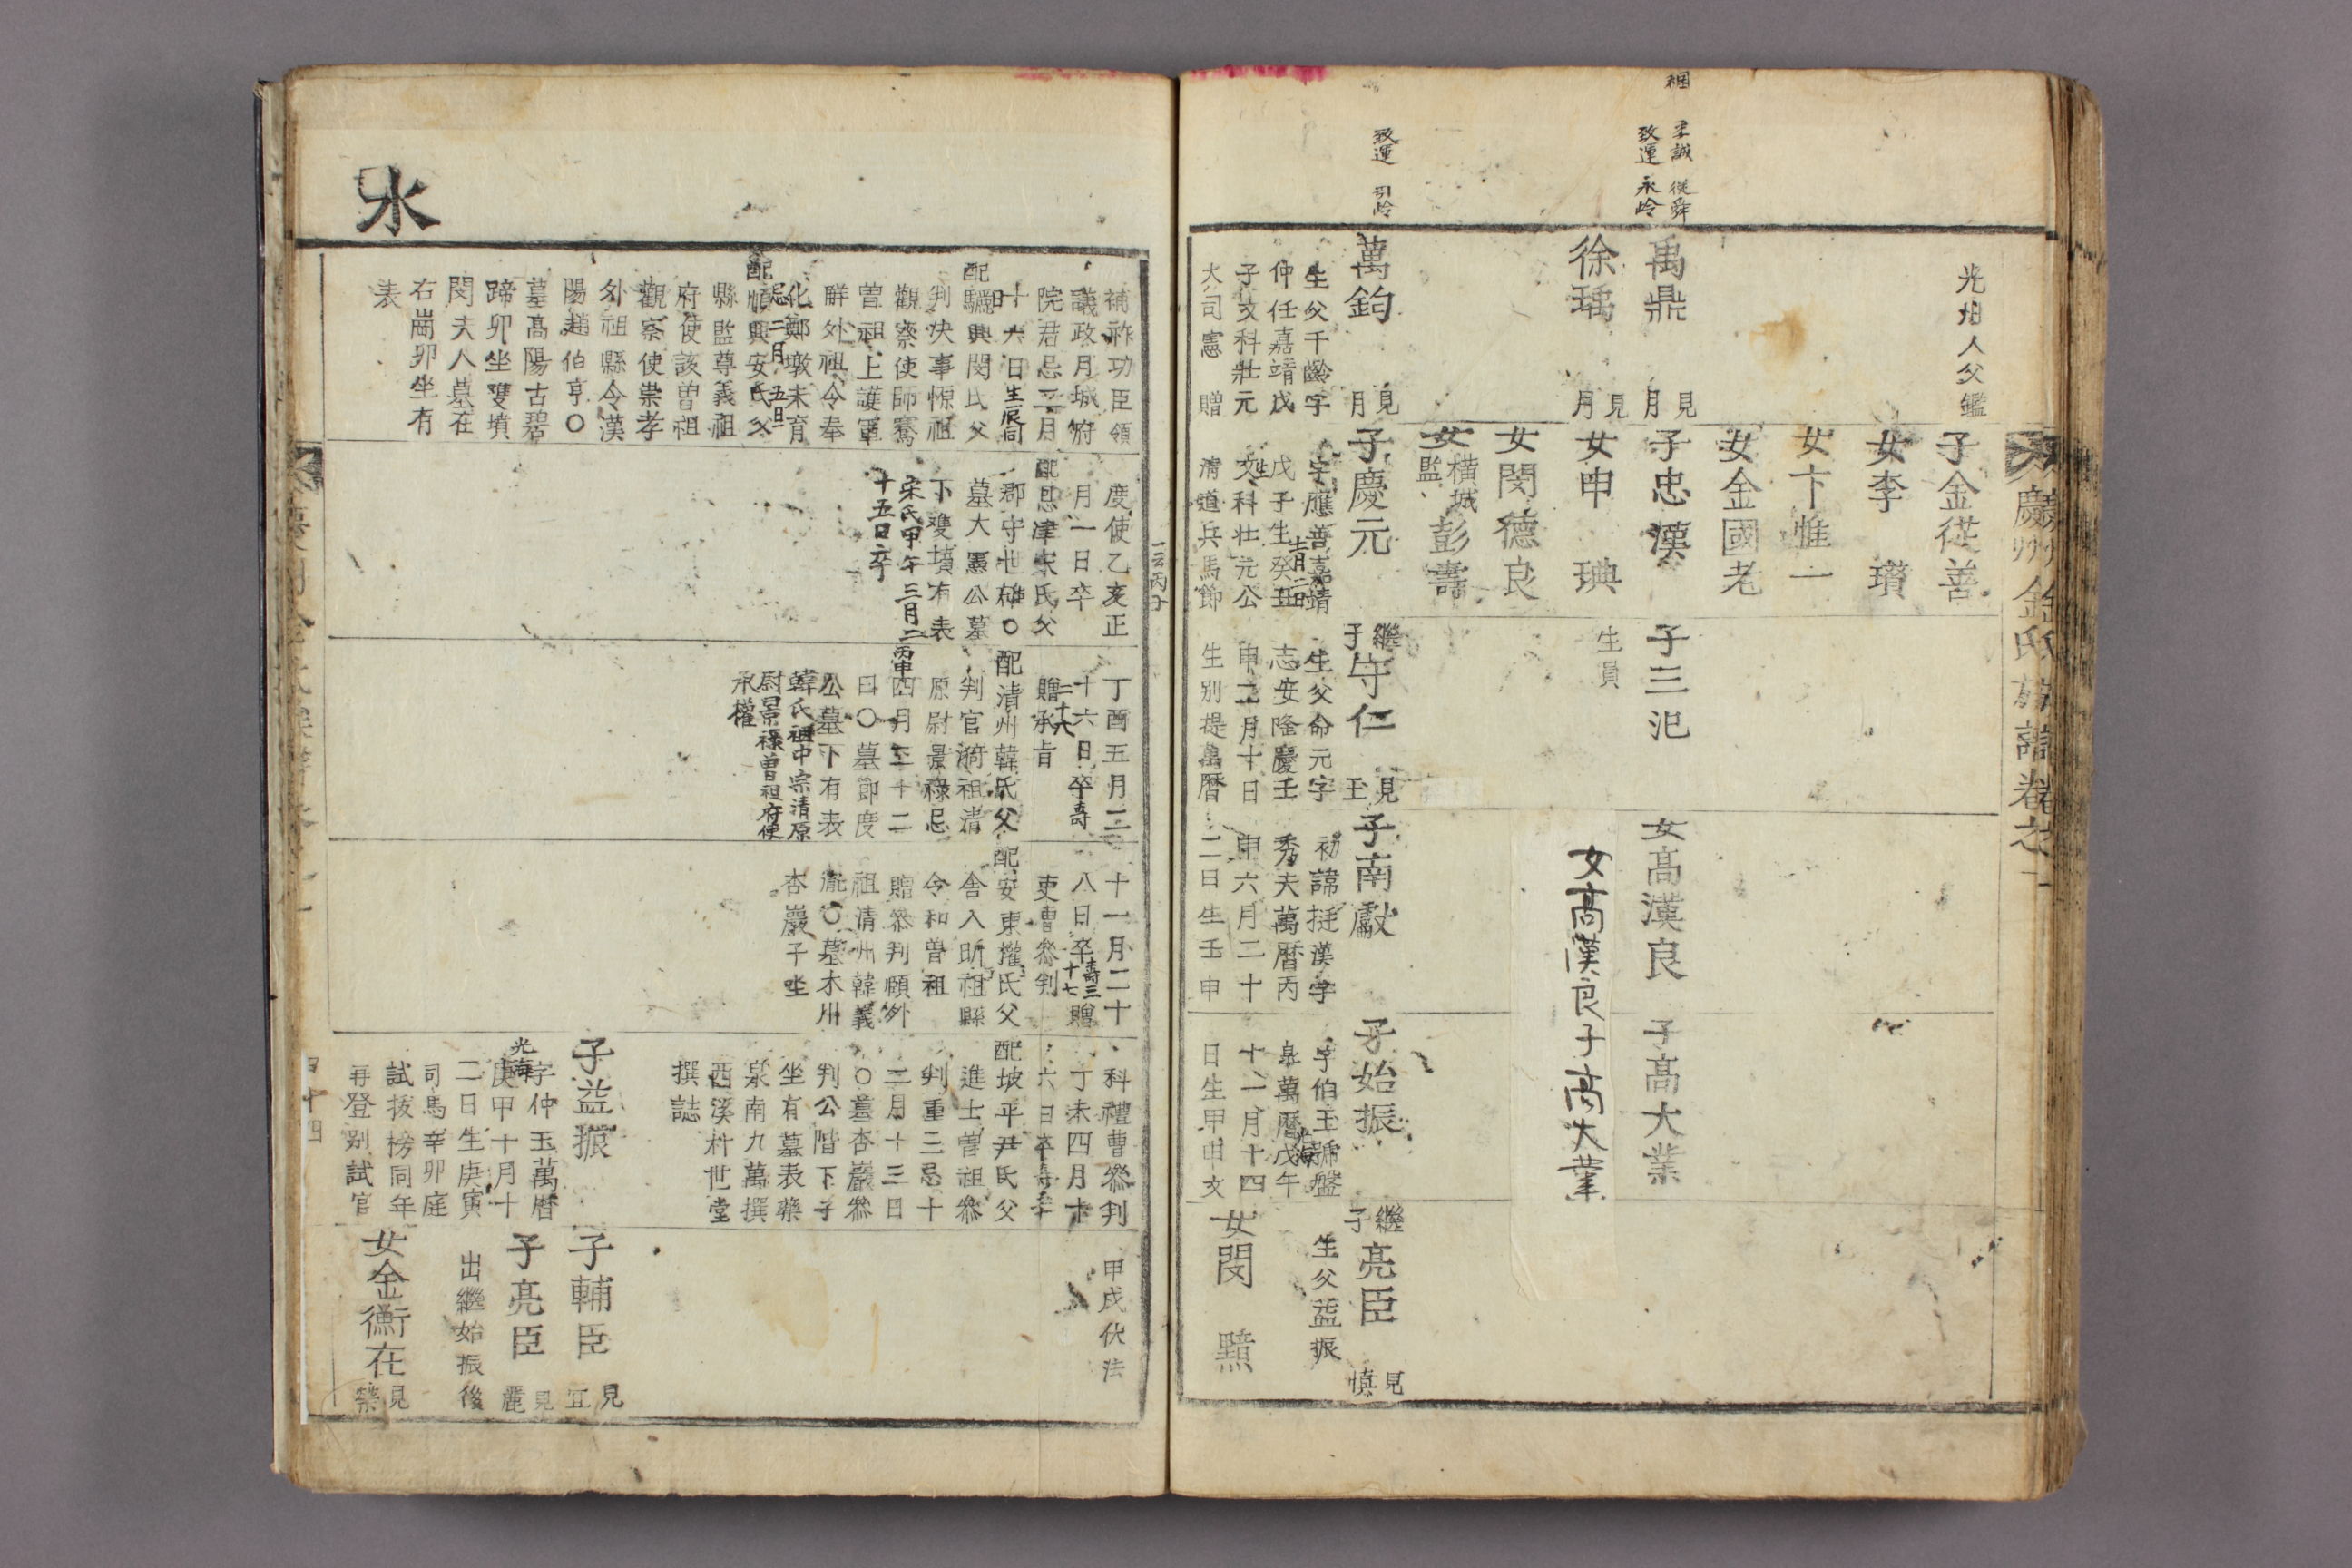 慶州金氏族譜卷之一
裀
孝誠 從舜
致運 永岭
致運 引岭
光州人父鑑
禹鼎 見月
徐瑀 見月
萬鈞 見月
生父千齡字
仲任嘉靖戊
子文科壯元
大司憲 贈
子金從善
女李 瓚
女卞惟一
女金國老
子忠漢
女申 琠
女閔德良
女橫城監彭壽
子慶元
字應善嘉靖
戊子生癸丑
文科壯元公
清道兵馬節
子三汜
生員
繼子守仁 見玉
生父命元字
志安隆慶壬
申二月十日
生別提萬曆
女高漢良
女高漢良子高大業
子南獻
初諱挺漢字
秀夫萬曆丙
申六月二十
二日生壬申
子高大業
子始振
字伯玉號盤
皐萬曆戊午
十一月十四
日生甲申文
繼子亮臣 見慎
生父益振
女閔 黯
水
補祚功臣領
議政月城府
院君忌三月
十六日生辰同
配驪興閔氏父
判決事懔祖
觀察使師騫
曽祖上護軍
辭外祖令奉
化鄭墩未育
忌二月五日
配順興安氏父
縣監尊義祖
府使該曽祖
觀察使崇孝
外祖縣令漢
陽趙伯亨○
墓高陽古碧
蹄卯坐雙墳
閔夫人墓在
右崗卯坐有
表
一云丙子
度使乙亥正
月一日卒
配恩津宋氏父
郡守世雄○
墓大憲公墓
下雙墳有表
宋氏甲午三月二
十五日卒
丁酉五月二
十六日卒壽
二十六
贈承旨
配清州韓氏父
判官漪祖清
原尉景祿忌
丙申四月二十二
日○墓節度
公墓下有表
韓氏祖中宗清原
尉景祿曽祖府使
承權
十一月二十
八日卒壽三十七贈
吏曹叅判
配安東權氏父
舍人昕祖縣
令和曽祖
贈叅判頤外
祖清州韓義
胤○墓木川
杏巖子坐
科禮曹叅判
丁未四月十
六日卒壽五十
配坡平尹氏父
進士曽祖叅
判重三忌十
二月十三日
○墓杏巖叅
判公階下子
坐有墓表藥
泉南九萬撰
西溪朴世堂
撰誌
子益振
字仲玉萬曆
庚申十月十
二日生庚寅
司馬辛卯庭
試拔榜同年
再登別試官
甲戌伏法
子輔臣 見宜
子亮臣 見麗
出繼始振後
女金衡在 見禁
四十四